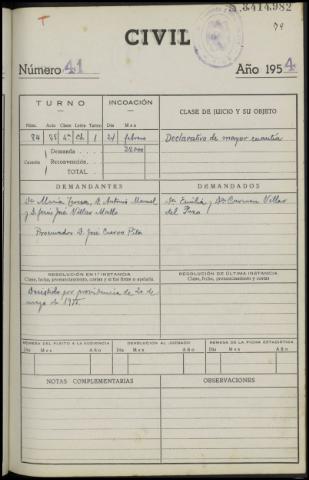 A.3414.982
79
CIVIL
Número 41 Año 1954
TURNO INCOACIÓN CLASE DE JUICIO Y SU OBJETO
Núm. Año Clase Letra Turno Día Mes
84 1 21 febrero Declarativo de mayor cuantía
Demanda
Cuantía Reconvención
TOTAL
DEMANDANTES DEMANDADOS
Dª María Teresa, D. Antonio Manuel Dª Emilia y Dª Carmen Villar
y D. Jesús José Villar del
Procurador D. José Cuervo
RESOLUCIÓN EN 1ª INSTANCIA RESOLUCIÓN DE ÚLTIMA INSTANCIA
Clase, fecha, pronunciamiento, costas y si fue firme o apelada Clase, fecha, pronunciamiento y costas
Desistido por providencia de 20 de
mayo de 1955.
REMESA DEL PLEITO A LA AUDIENCIA DEVOLUCIÓN AL JUZGADO REMESA DE LA FICHA ESTADÍSTICA
Día Mes Año Día Mes Año Día Mes Año
NOTAS COMPLEMENTARIAS OBSERVACIONES